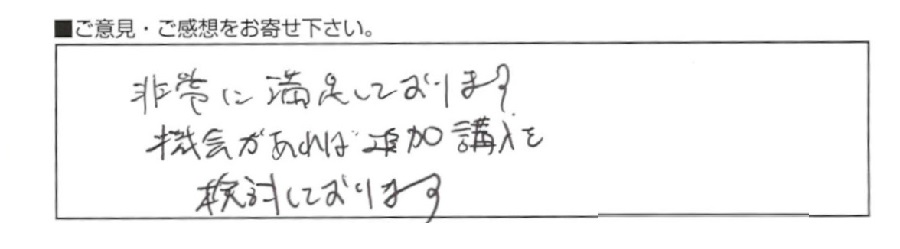 ■ご意見・ご感想をお寄せ下さい。
非常に満足しております
機会があれば追加講入を
検討しております